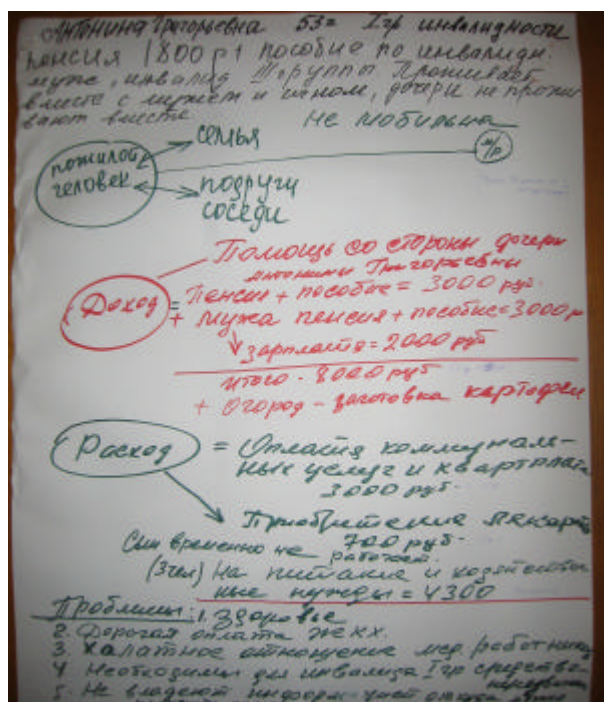 Антонина Григорьевна 53г Iгр инвалидности
пенсия 1800 р + пособие по инвалидн.
муж, инвалид III группы Проживает
вместе с мужем и сыном, дочери не прожи
вают вместе
Не мобильна
семья
пожилой
человек
м/р
подруги
соседи
Помощь со стороны дочери
Антонины Григорьевны
Доход = Пенсия + пособие = 3000 руб.
+ мужа пенсия + пособие = 3000 р
зарплата = 2000 руб
Итого - 8000 руб
+ Огород - заготовка картофеля
Расход = Оплата коммуналь-
ных услуг и квартплата
3000 руб.
Приобритение лекарств
700 руб.
Сын временно не работает.
(3чел) На питание и хозяйствен
ные нужды = 4300
Проблемы: 1. Здоровье
2. Дорогая оплата ЖКХ.
3. Халатное отношение мед. работников
4 Необходимы для инвалида I гр средства
передвиж
5. Не владеют информ